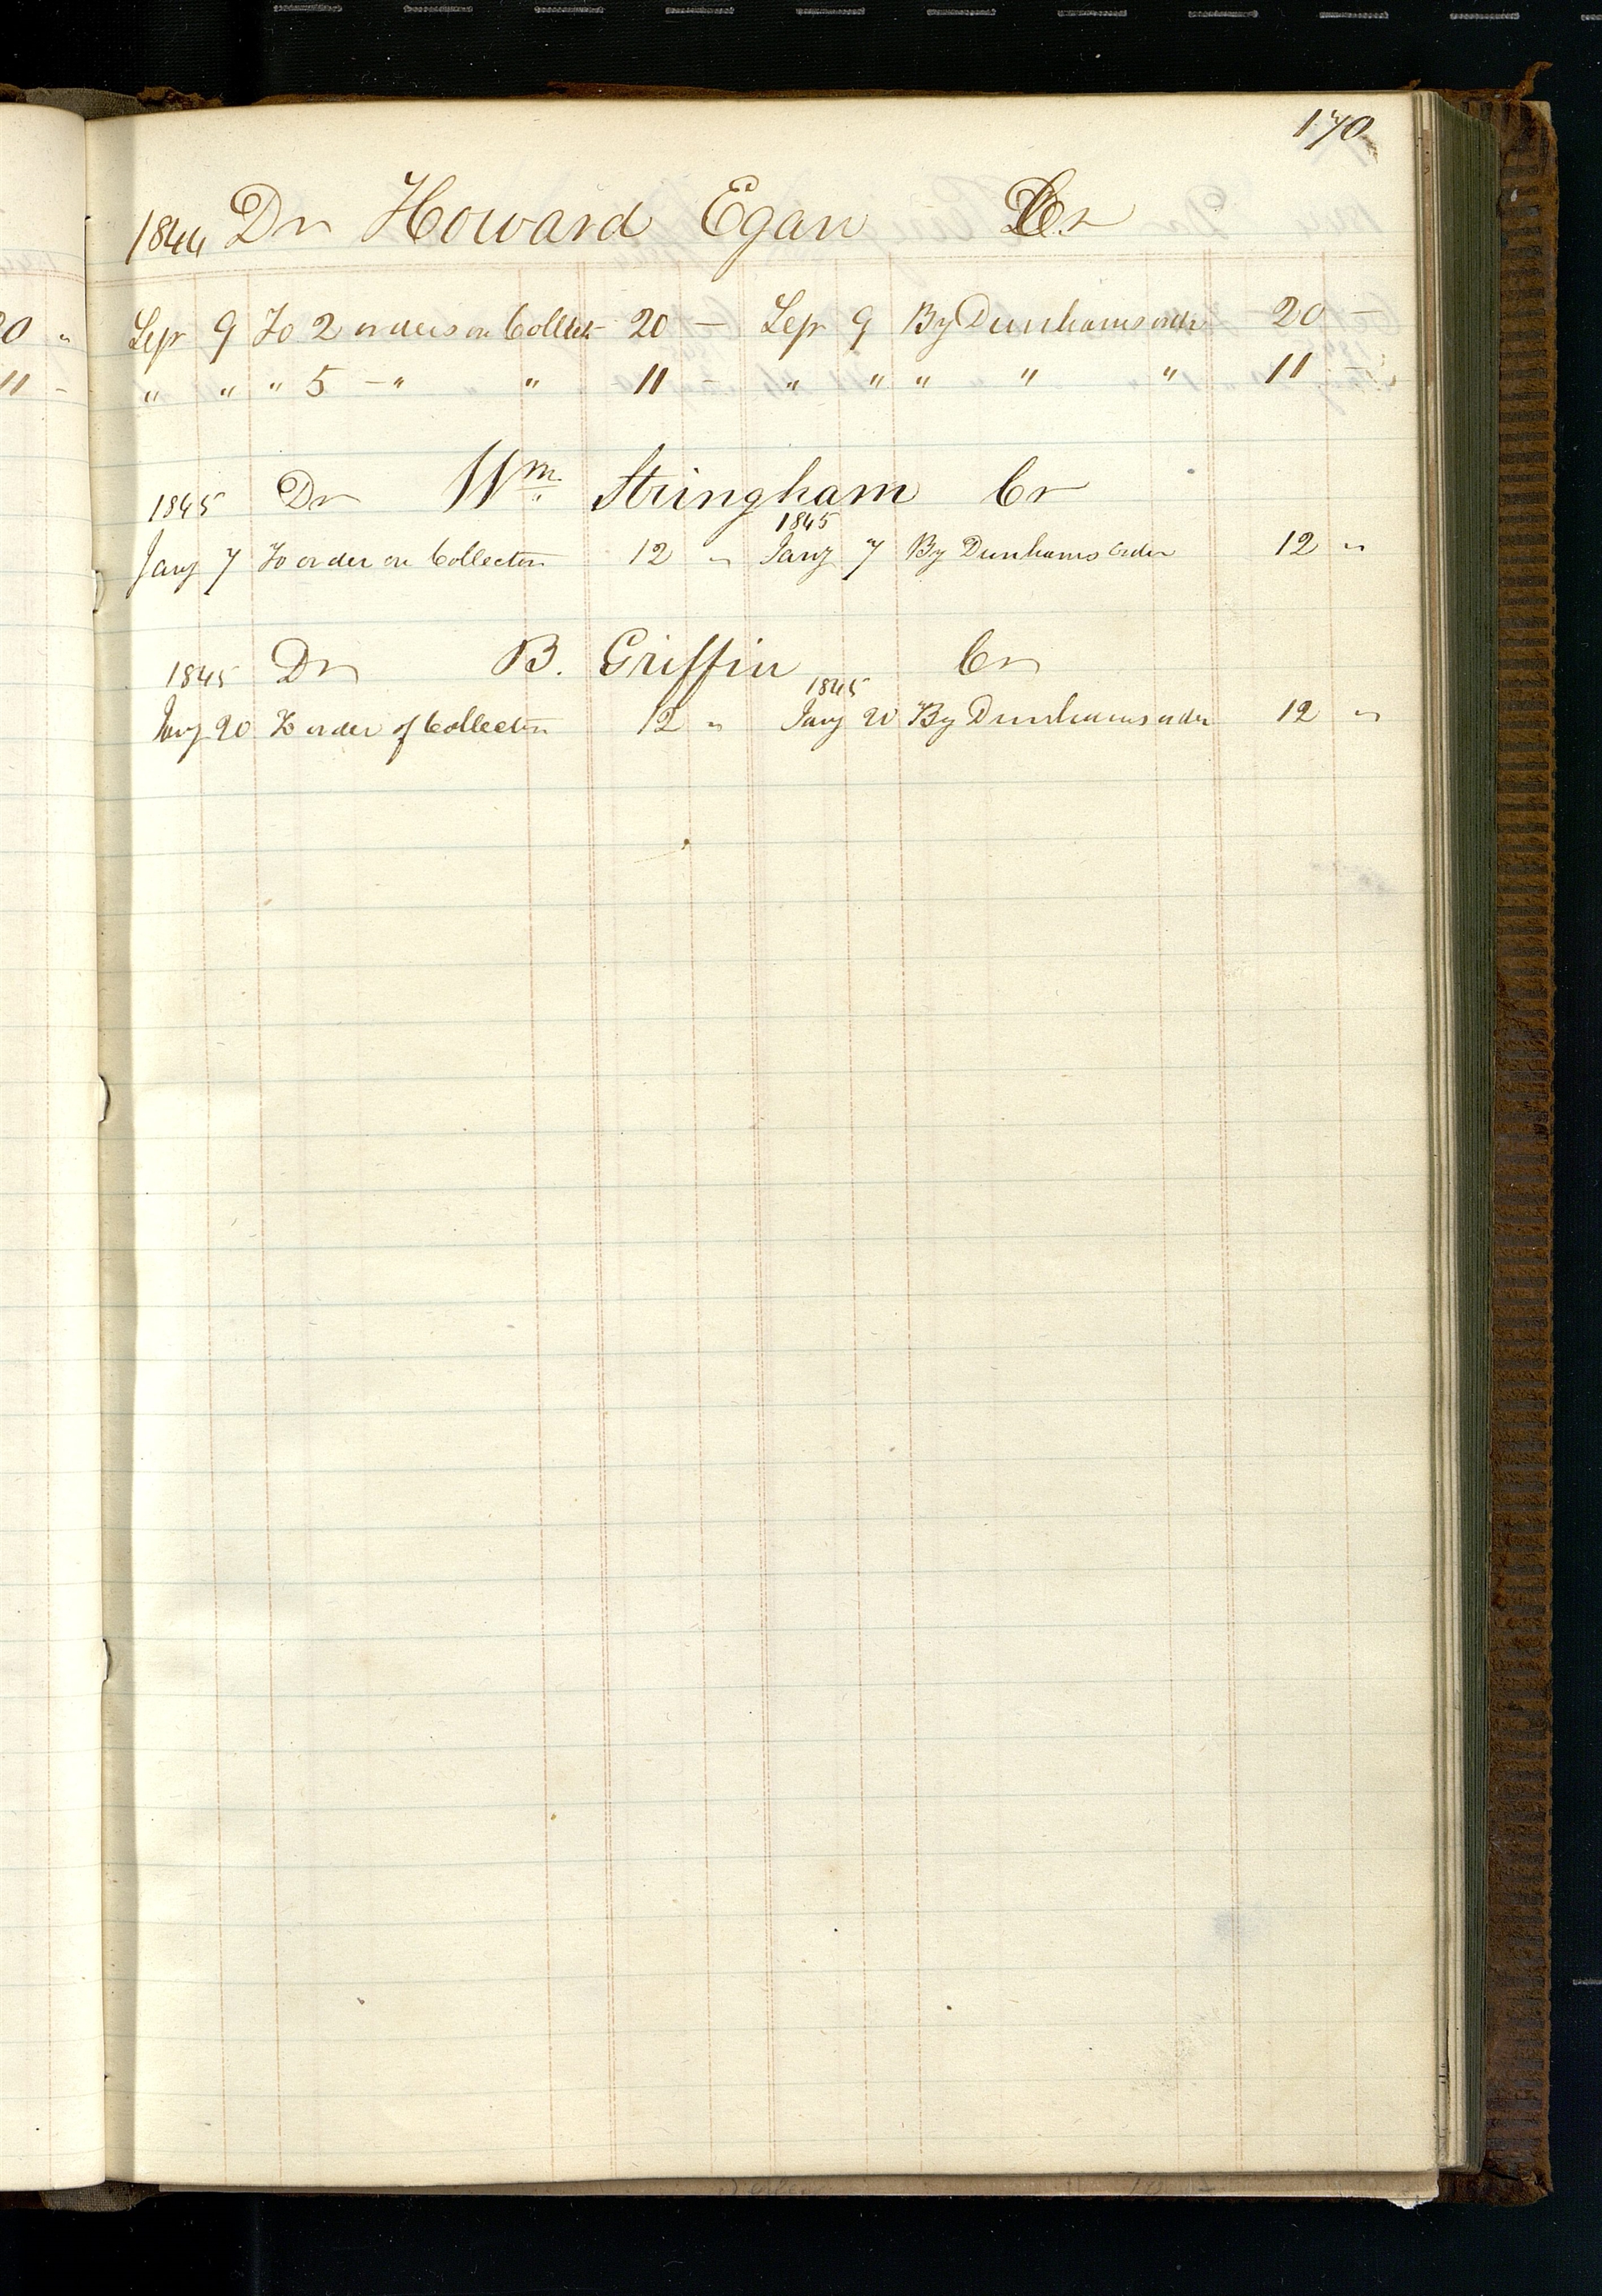 170
1844 Dr Howard Egan Cr
Sepr 9 To 2 orders on Collect 20 — Sepr 9 By Dunhams order 20 —
" " " 5 — " " " 11 — " " " " " 11 —
1845 Dr Wm Stringham Cr
1845
Jany 7 To order on Collector 12 " Jany 7 By Dunhams Order 12 "
1845 Dr B. Griffin Cr
1845
Jany 20 To order of Collector 12 " Jany 20 By Dunhams order 12 "